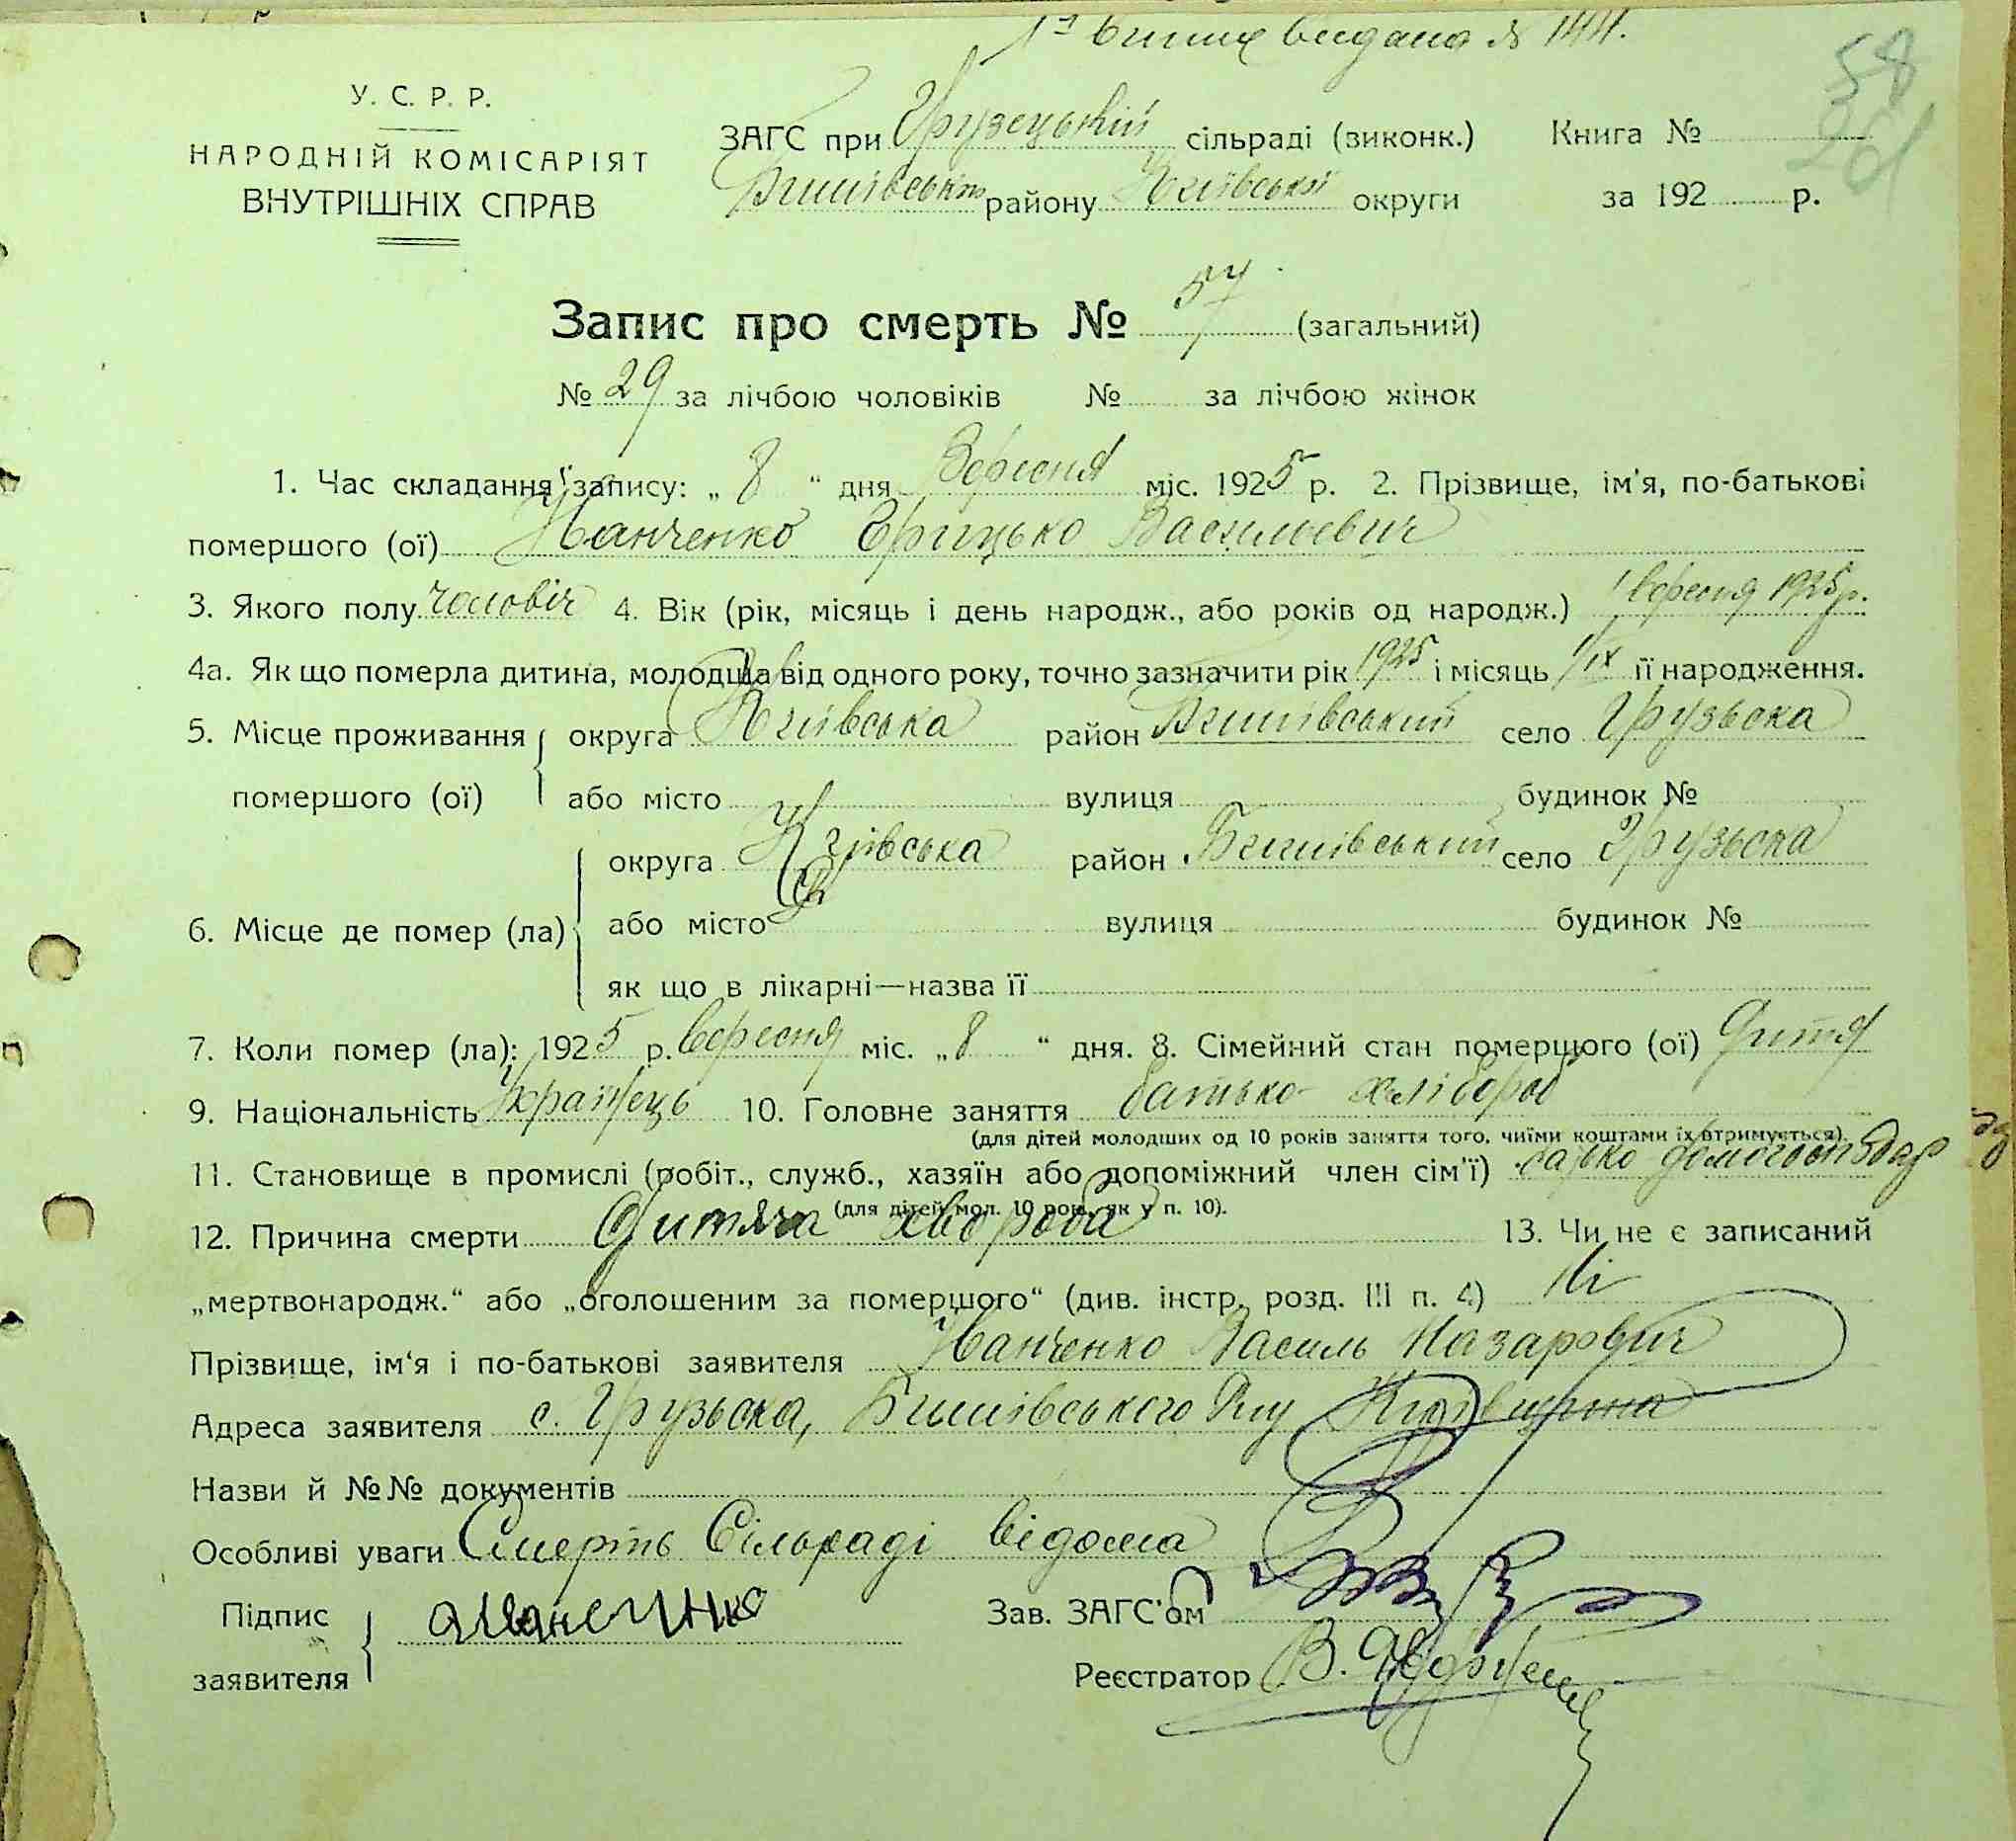 1й витяг видано № 144.
58
У. С. Р. Р.
НАРОДНІЙ КОМІСАРІЯТ
ВНУТРІШНІХ СПРАВ
ЗАГС при Грузецькій сільраді (виконк.) Книга №
Бишівськ району Київської округи за 192 р.
Запис про смерть № 57 (загальний)
№ 29 за лічбою чоловіків № за лічбою жінок
1. Час складання запису: „ 8 “ дня Вересня міс. 1925 р. 2. Прізвище, ім'я, по-батькові
помершого (ої) Іванченко Грицько Васильевич
3. Якого полу чоловіч 4. Вік (рік, місяць і день народж., або років од народж.) 1 вересня 1925 р.
4а. Як що померла дитина, молодша від одного року, точно зазначити рік 1925 і місяць 1/IX її народження.
5. Місце проживання округа Київська район Бишівський село Грузьска
помершого (ої) або місто вулиця будинок №
округа Київська район Бишівський село Грузьска
6. Місце де помер (ла) або місто вулиця будинок №
як що в лікарні—назва її
7. Коли помер (ла): 1925 р. вересня міс. „ 8 “ дня. 8. Сімейний стан помершого (ої) Дитя
9. Національність Украінець 10. Головне заняття батько хлібороб
(для дітей молодших од 10 років заняття того, чиїми коштами їх втримується).
11. Становище в промислі (робіт., служб., хазяїн або допоміжний член сім'ї)
(для дітей мол. 10 рок. як у п. 10).
12. Причина смерти Дитяча хвороба 13. Чи не є записаний
„мертвонародж.“ або „оголошеним за помершого“ (див. інстр. розд. III п. 4) Ні
Прізвище, ім'я і по-батькові заявителя Іванченко Василь Назарович
Адреса заявителя с. Грузьска, Бишівського Р-ну Київщина
Назви й №№ документів
Особливі уваги Смерть Сільраді відома
Підпис
заявителя
Зав. ЗАГС'ом
Реєстратор В.